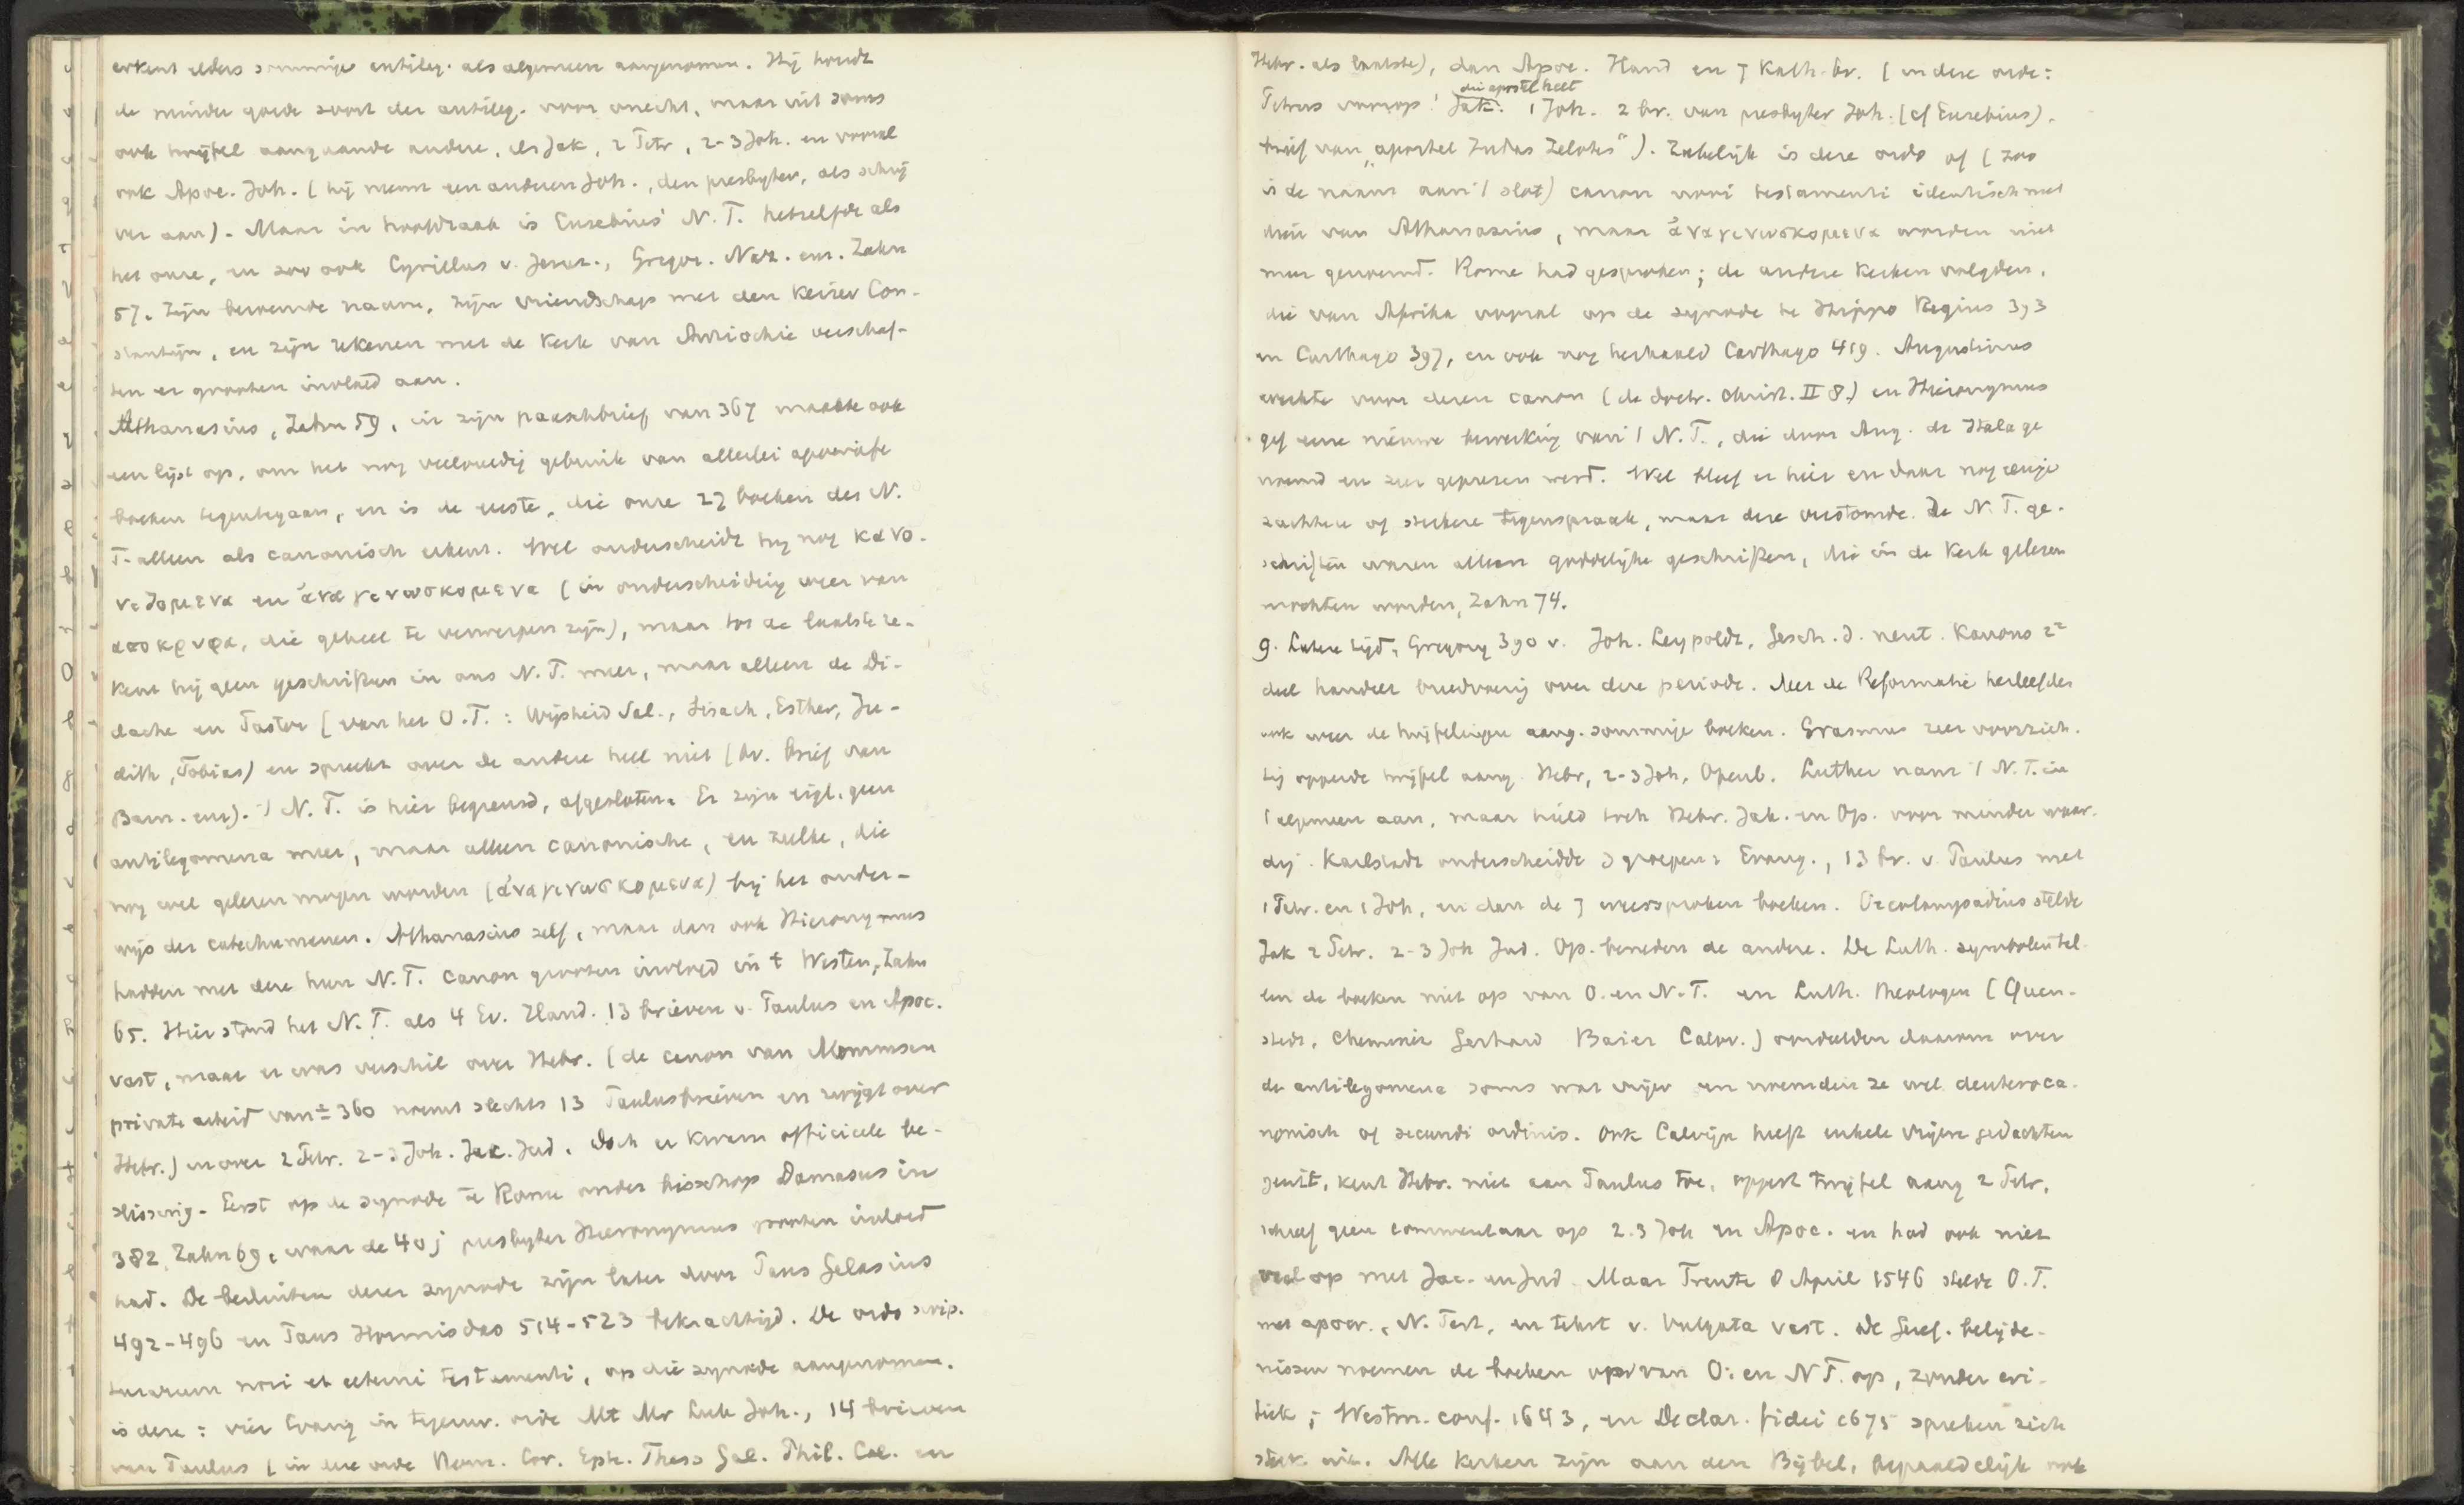 erkent elders sommige antileg. als algemeen aangenomen. Hij houdt
de minder goede soort der antileg. voor onecht, maar uit soms
ook twijfel aangaande andere, als Jak, 2 Petr, 2-3 Joh. en vooral
ook Apoc. Joh. (hij neemt een anderen Joh., den presbyter, als schrij
ver aan). Maar in hoofdzaak is Eusebius' N. T. hetzelfde als
het onze, en zoo ook Cyrillus v. Jeruz., Gregor. Naz. enz. Zahn
57. Zijn beroemde naam, zijn vriendschap met den keizer Con-
stantijn, en zijn rekenen met de kerk van Antiochie verschaf-
ten er grooten invloed aan.
Athanasius, Zahn 59, in zijn paaschbrief van 367 maakte ook
een lijst op, om het nog veelvuldig gebruik van allerlei apocriefe
boeken tegentegaan, en is de eerste, die onze 27 boeken des N.
T. alleen als canonisch erkent. Wel onderscheidt hij nog κανο-
νιζομενα en ἀναγινωσκομενα (in onderscheiding weer van
αποκρυφα, die geheel te verwerpen zijn), maar tot de laatste re-
kent hij geen geschriften in ons N. T. meer, maar alleen de Di-
dache en Pastor (van het O. T. : Wijsheid Sal., Sirach, Esther, Ju-
dith, Tobias) en spreekt over de andere heel niet (bv. brief van
Barn. enz). 't N. T. is hier begrensd, afgesloten. Er zijn eigl. geen
antilegomena meer, maar alleen canonische, en zulke, die
nog wel gelezen mogen worden (ἀναγινωσκομενα) bij het onder-
wijs der catechumenen. Athanasius zelf, maar dan ook Hieronymus
hadden met deze hun N. T. canon grooten invloed in 't Westen, Zahn
65. Hier stond het N. T. als 4 Ev. Hand. 13 brieven v. Paulus en Apoc.
vast, maar er was verschil over Hebr. (de canon van Mommsen
private arbeid van ± 360 noemt slechts 13 Paulusbrieven en zwijgt over
Hebr.) en over 2 Petr. 2-3 Joh. Jac. Jud. Doch er kwam officieele be-
slissing. Eerst op de synode te Rome onder bisschop Damasus in
382, Zahn 69, waar de 40 j presbyter Hieronymus grooten invloed
had. De besluiten dezer synode zijn later door Paus Gelasius
492-496 en Paus Hormisdas 514-523 bekrachtigd. De ordo scrip-
turarum novi et veteris testamenti, op die synode aangenomen,
is deze : vier Evang in tegenw. orde Mt Mr Luk Joh., 14 brieven
van Paulus (in deze orde Rom. Cor. Eph. Thess Gal. Phil. Col. en
Hebr. als laatste), dan Apoc. Hand en 7 Kath. br. (in deze orde:
Petrus voorop! Jak. die apostel heet 1 Joh. 2 br. van presbyter Joh. (cf Eusebius),
brief van „apostel Judas Zelotes"). Zakelijk is deze ordo of (zoo
is de naam aan 't slot) canon novi testamenti identisch met
dien van Athanasius, maar ἀναγινωσκομενα worden niet
meer genoemd. Rome had gesproken; de andere kerken volgden,
die van Afrika vooral op de synode te Hippo Regius 393
en Carthago 397, en ook nog herhaald Carthago 419. Augustinus
werkte voor dezen canon (de doctr. Christ. II 8.) en Hieronymus
gaf eene nieuwe bewerking van 't N. T., die door Aug. de Itala ge
noemd en zeer geprezen werd. Wel bleef er hier en daar nog eenige
zachtere of sterkere tegenspraak, maar deze verstomde. De N. T. ge-
schriften waren alleen goddelijke geschriften, die in de kerk gelezen
mochten worden, Zahn 74.
9. Latere tijd, Gregory 390 v. Joh. Leypoldt, Gesch. d. neut. Kanons 2e
deel handelt breedvoerig over deze periode. Met de Reformatie herleefden
ook weer de twijfelingen aang. sommige boeken. Erasmus zeer voorzich-
tig opperde twijfel aang. Hebr, 2-3 Joh, Openb. Luther nam 't N. T. in
't algemeen aan, maar hield toch Hebr. Jak. en Op. voor minder waar-
dig. Karlstadt onderscheidde 3 groepen: Evang., 13 br. v. Paulus met
1 Petr. en 1 Joh, en dan de 7 weersproken boeken. Oecolampadius stelde
Jak 2 Petr. 2-3 Joh Jud. Op. beneden de andere. De Luth. symbolen tel
len de boeken niet op van O. en N. T. en Luth. theologen (Quen-
stedt, Chemniz Gerhard Baier Calov.) oordeelden daarom over
de antilegomena soms wat vrijer en noemden ze wel deuteroca-
nonisch of secundi ordinis. Ook Calvijn heeft enkele vrijere gedachten
geuit, kent Hebr. niet aan Paulus toe, oppert twijfel aang 2 Petr,
schreef geen commentaar op 2.3 Joh en Apoc. en had ook niet
veel op met Jac. en Jud. Maar Trente 8 April 1546 stelde O. T.
met apocr., N. Test, en tekst v. Vulgata vast. De Geref. belijde-
nissen noemen de boeken op van O. en N T. op, zonder cri-
tiek; Westm. conf. 1643, en Declar. fidei 1675 spreken zich
sterk uit. Alle kerken zijn aan den Bijbel, bepaaldelijk ook